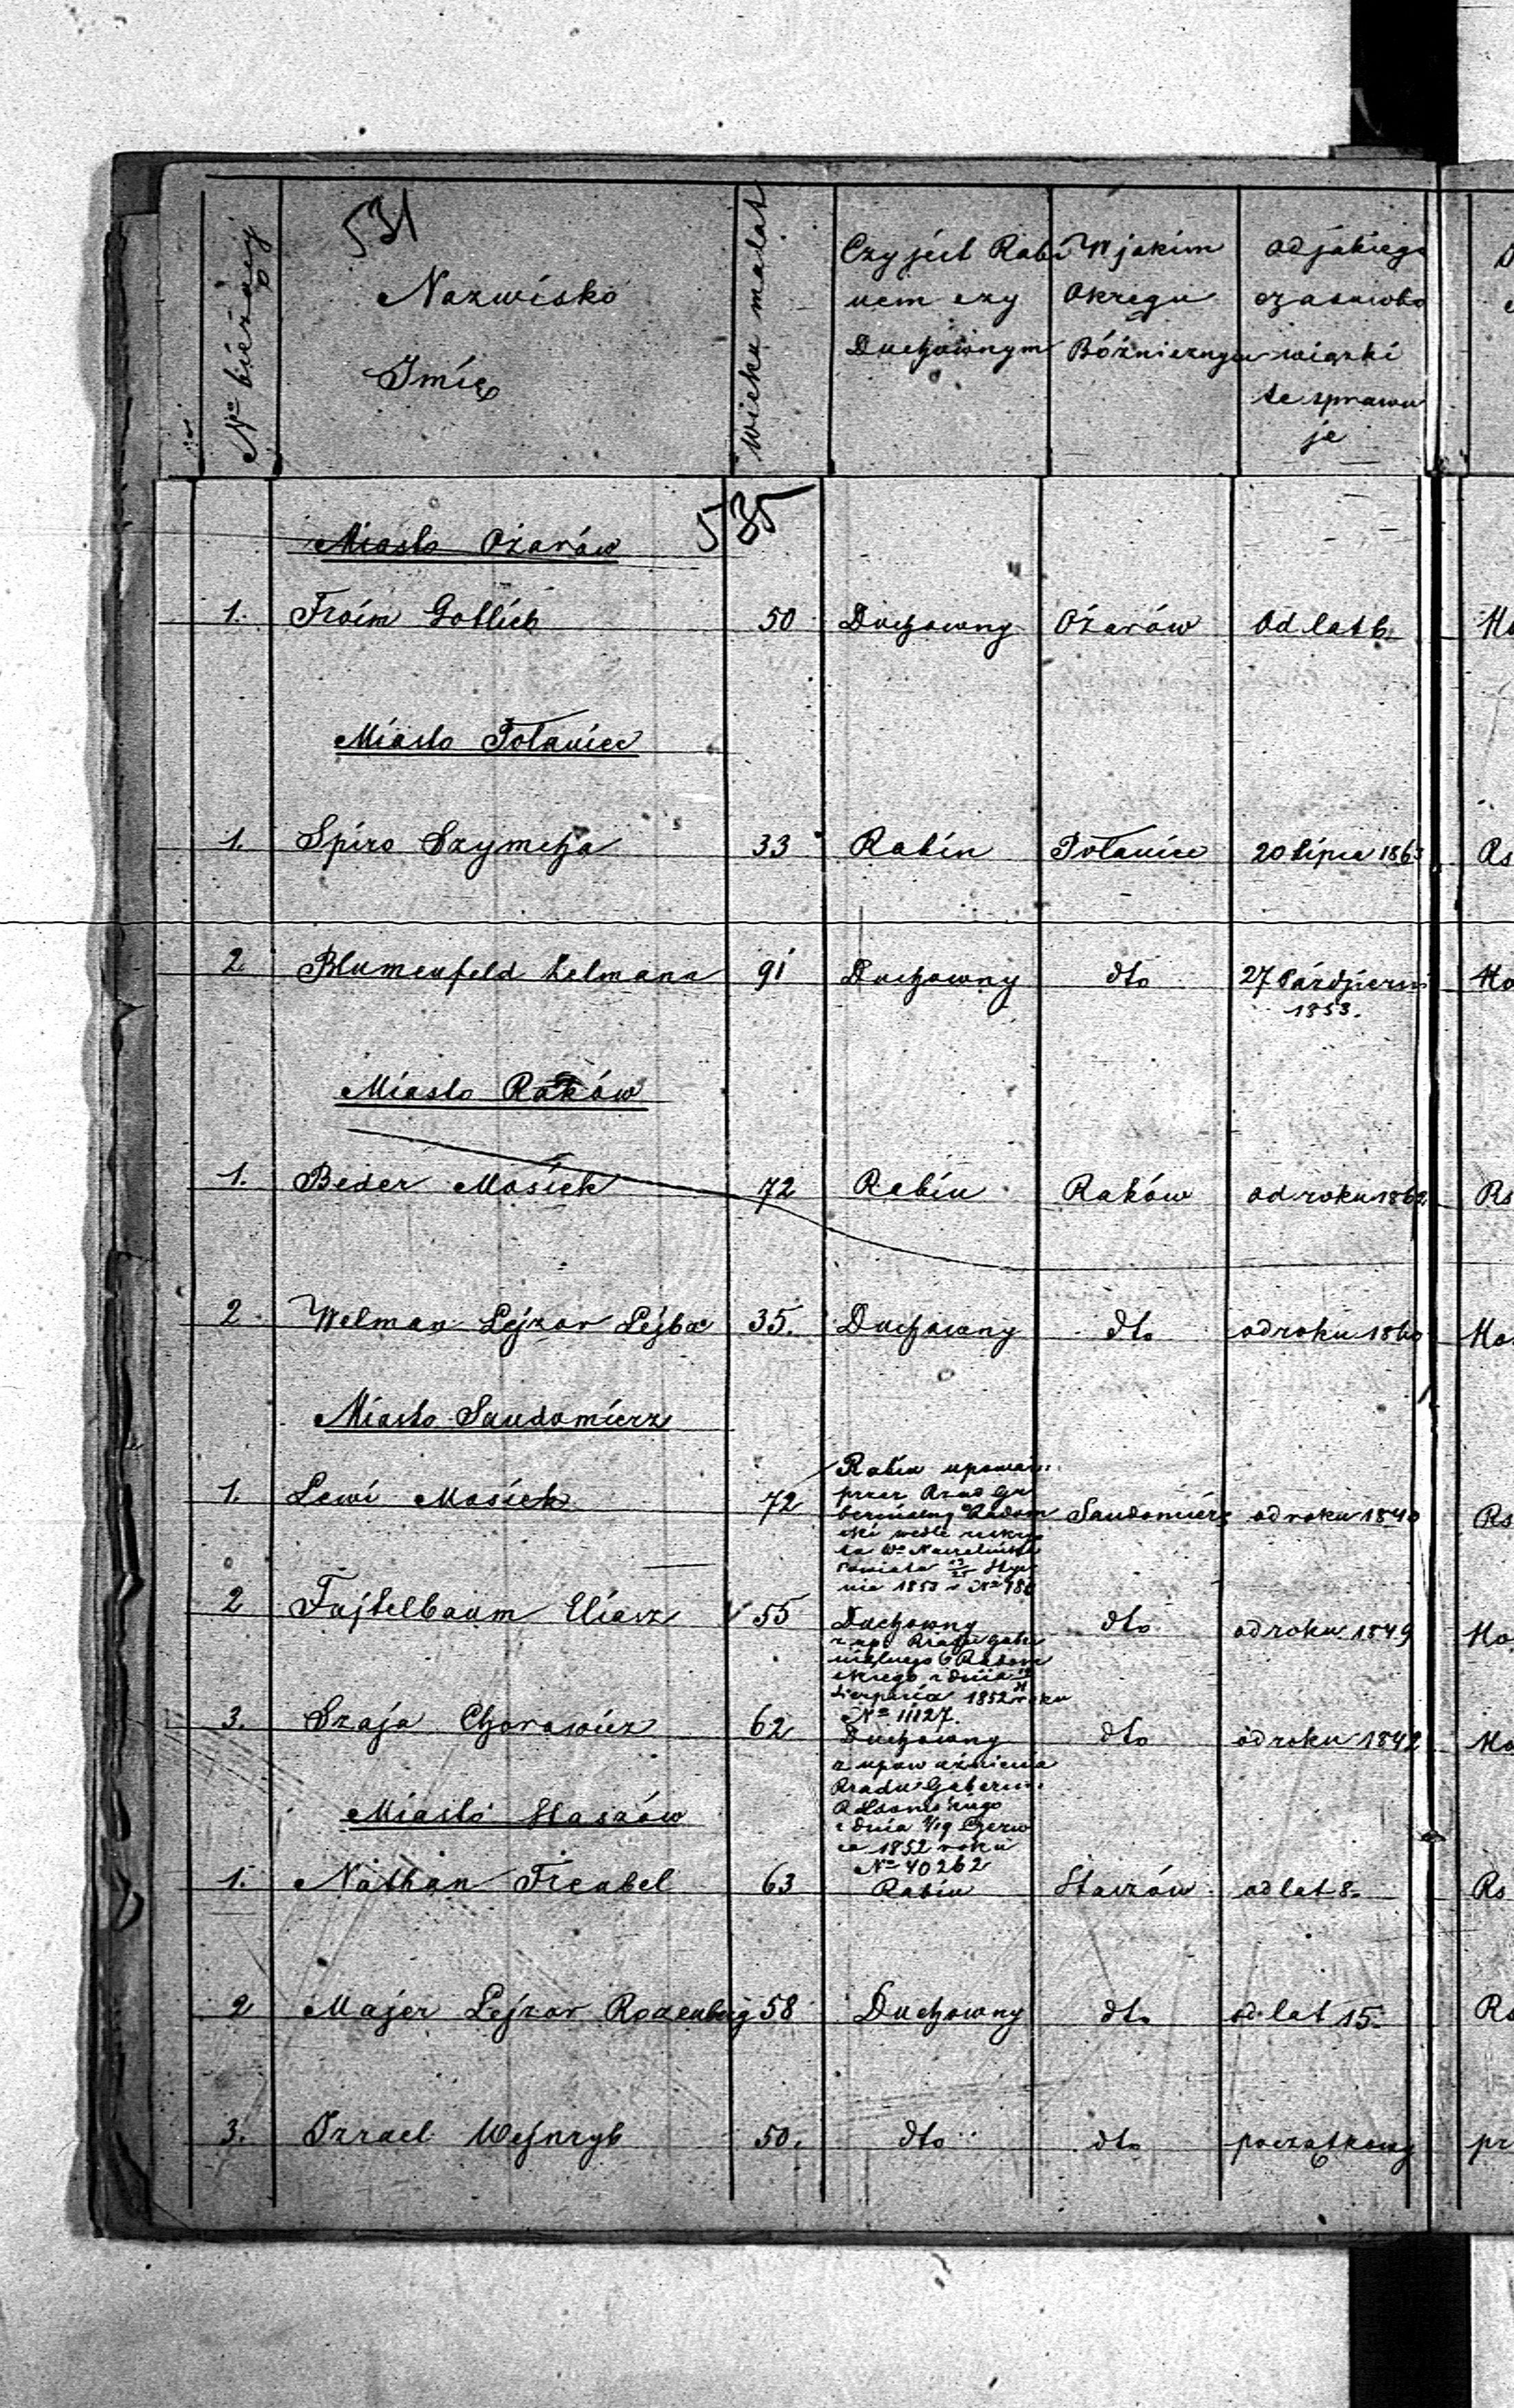 531
Nº bieżący
Nazwisko
Imię
wieku ma lat
Czy jest Rabi
nem czy
Duchownym
W jakim
Okręgu
Bóżnicznym
od jakiego
czasu obo
wiązki
te sprawu
je
535
Miasto Ożarów
1. Froim Gotlieb 50 Duchowny Ożarów Od lat 6
Miasto Połaniec
1. Spiro Szymcha 33 Rabin Połaniec 20 Lipca 1863
2 Blumenfeld Kelmana 91 Duchowny dto 27 Październi
1853.
Miasto Raków
1. Beder Mosiek 72 Rabin Raków od roku 1862
2 Welman Lejzor Lejba 35. Duchowny dto od roku 1860
Miasto Sandomierz
1. Lewi Mosiek 72 Rabin upoważ:
przez Rząd Gu
bernialny Radom
ski wedle reskryp
ta Wº Naczelnika
Powiatu 13/25 Stycz
nia 1853 r Nº 486
Sandomierz od roku 1840
2 Fajtelbaum Eliasz 55 Duchowny
z up: Rządu guber
nialnego Radom
skiego z dnia
Sierpnia 1852 roku
Nº 11127.
dto od roku 1849
3. Szaja Chorowicz 62 Duchowny
z upoważnienia
Rządu Gubern:
Radomskiego
z dnia 7/19 Czerw
ca 1852 roku
Nº 40262
dto od roku 1842
Miasto Staszów
1. Nathan Frenbel 63 Rabin Staszów od lat 8.
2 Majer Lejzor Rozenberg 58 Duchowny dto od lat 15.
3. Izrael Wejnryb 50. dto dto początkowy